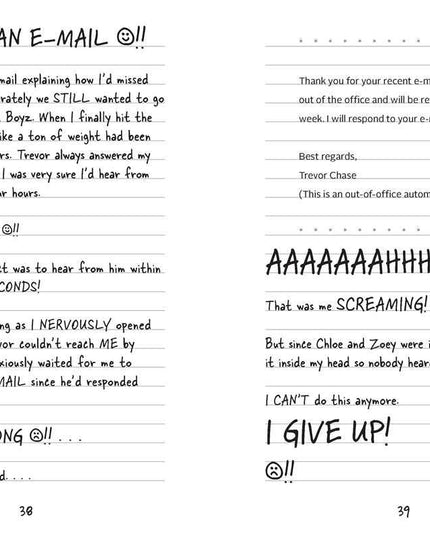 AN E-MAIL ☺!!
mail explaining how I'd missed
rately we STILL wanted to go
Boyz. When I finally hit the
ike a ton of weight had been
rs. Trevor always answered my
I was very sure I'd hear from
r hours.
☺!!
t was to hear from him within
CONDS!
ng as I NERVOUSLY opened
vor couldn't reach ME by
xiously waited for me to
MAIL since he'd responded
ONG ☹!! . . .
d. . . .
38
Thank you for your recent e-m
out of the office and will be re
week. I will respond to your e-
Best regards,
Trevor Chase
(This is an out-of-office autom
AAAAAAAHHH
That was me SCREAMING!
But since Chloe and Zoey were i
it inside my head so nobody hear
I CAN'T do this anymore.
I GIVE UP!
☹!!
39